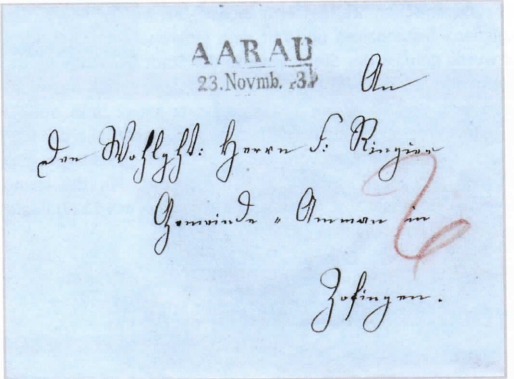 AARAU
23. Novmb. 3
An
Den Wohlght: Herrn F: Ringier
Gemeinde - Amman in
Zofingen.